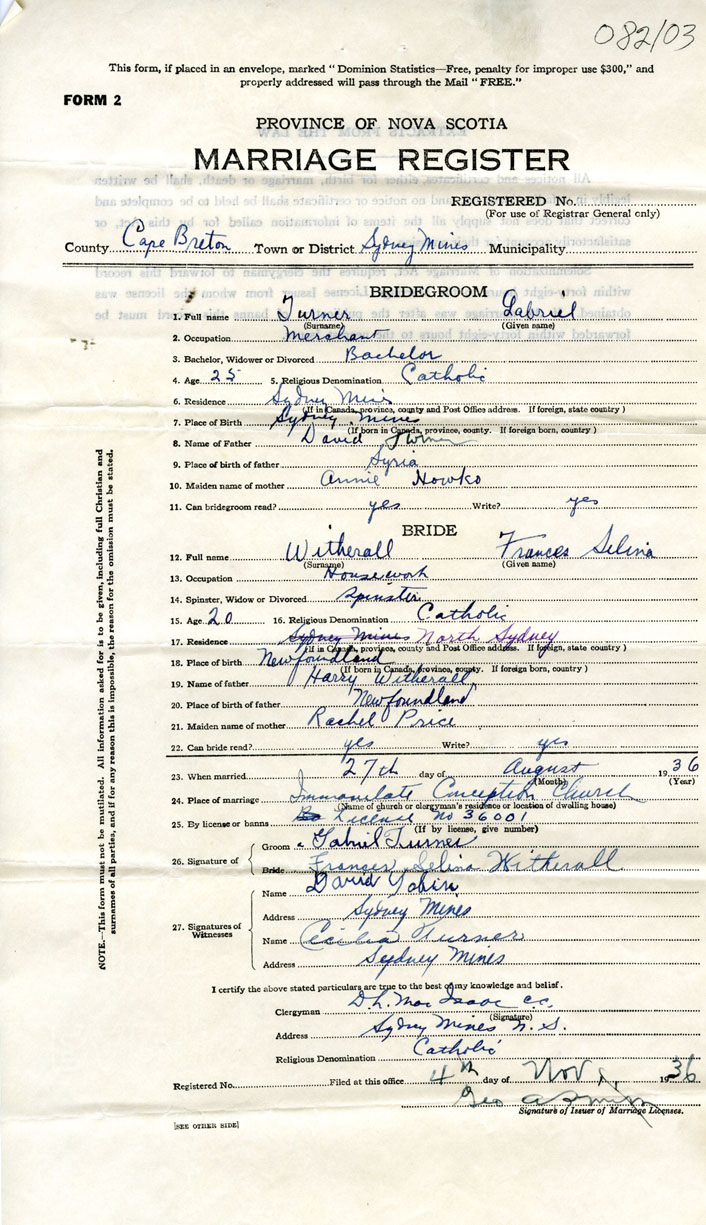 082/03
This form, if placed in an envelope, marked "Dominion Statistics—Free, penalty for improper use $300," and
properly addressed will pass through the Mail "FREE."
FORM 2
PROVINCE OF NOVA SCOTIA
MARRIAGE REGISTER
REGISTERED No.
(For use of Registrar General only)
County Cape Breton Town or District Sydney Mines Municipality
BRIDEGROOM
1. Full name Turner Gabriel
(Surname) (Given name)
2. Occupation Merchant
3. Bachelor, Widower or Divorced Bachelor
4. Age 25 5. Religious Denomination Catholic
6. Residence Sydney Mines
(If in Canada, province, county and Post Office address. If foreign, state country)
7. Place of Birth Sydney Mines
(If born in Canada, province, county. If foreign born, country)
8. Name of Father David Turner
9. Place of birth of father Syria
10. Maiden name of mother Annie Howko
11. Can bridegroom read? yes Write? yes
BRIDE
12. Full name Witherall Frances Selina
(Surname) (Given name)
13. Occupation Housework
14. Spinster, Widow or Divorced Spinster
15. Age 20 16. Religious Denomination Catholic
17. Residence Sydney Mines North Sydney
(If in Canada, province, county and Post Office address. If foreign, state country)
18. Place of birth Newfoundland
(If born in Canada, province, county. If foreign born, country)
19. Name of father Harry Witherall
20. Place of birth of father Newfoundland
21. Maiden name of mother Rachel Price
22. Can bride read? yes Write? yes
23. When married 27th day of August 1936
(Month) (Year)
24. Place of marriage Immaculate Conception Church
(Name of church or clergyman's residence or location of dwelling house)
25. By license or banns License No 36001
(If by license, give number)
26. Signature of
Groom Gabriel Turner
Bride Frances Selina Witherall
27. Signatures of Witnesses
Name David Tobin
Address Sydney Mines
Name Cecilia Turner
Address Sydney Mines
I certify the above stated particulars are true to the best of my knowledge and belief.
Clergyman D. L. MacIsaac cc.
(Signature)
Address Sydney Mines N.S.
Religious Denomination Catholic
Registered No. Filed at this office 4th day of Nov. 1936
Geo
Signature of Issuer of Marriage Licenses.
[SEE OTHER SIDE]
NOTE.—This form must not be mutilated. All information asked for is to be given, including full Christian and
surnames of all parties, and if for any reason this is impossible, the reason for the omission must be stated.